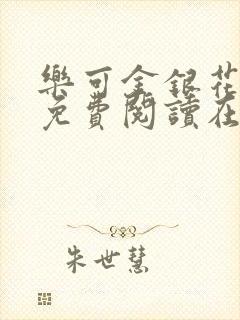 樂可金銀花
免費閱讀在
朱世慧